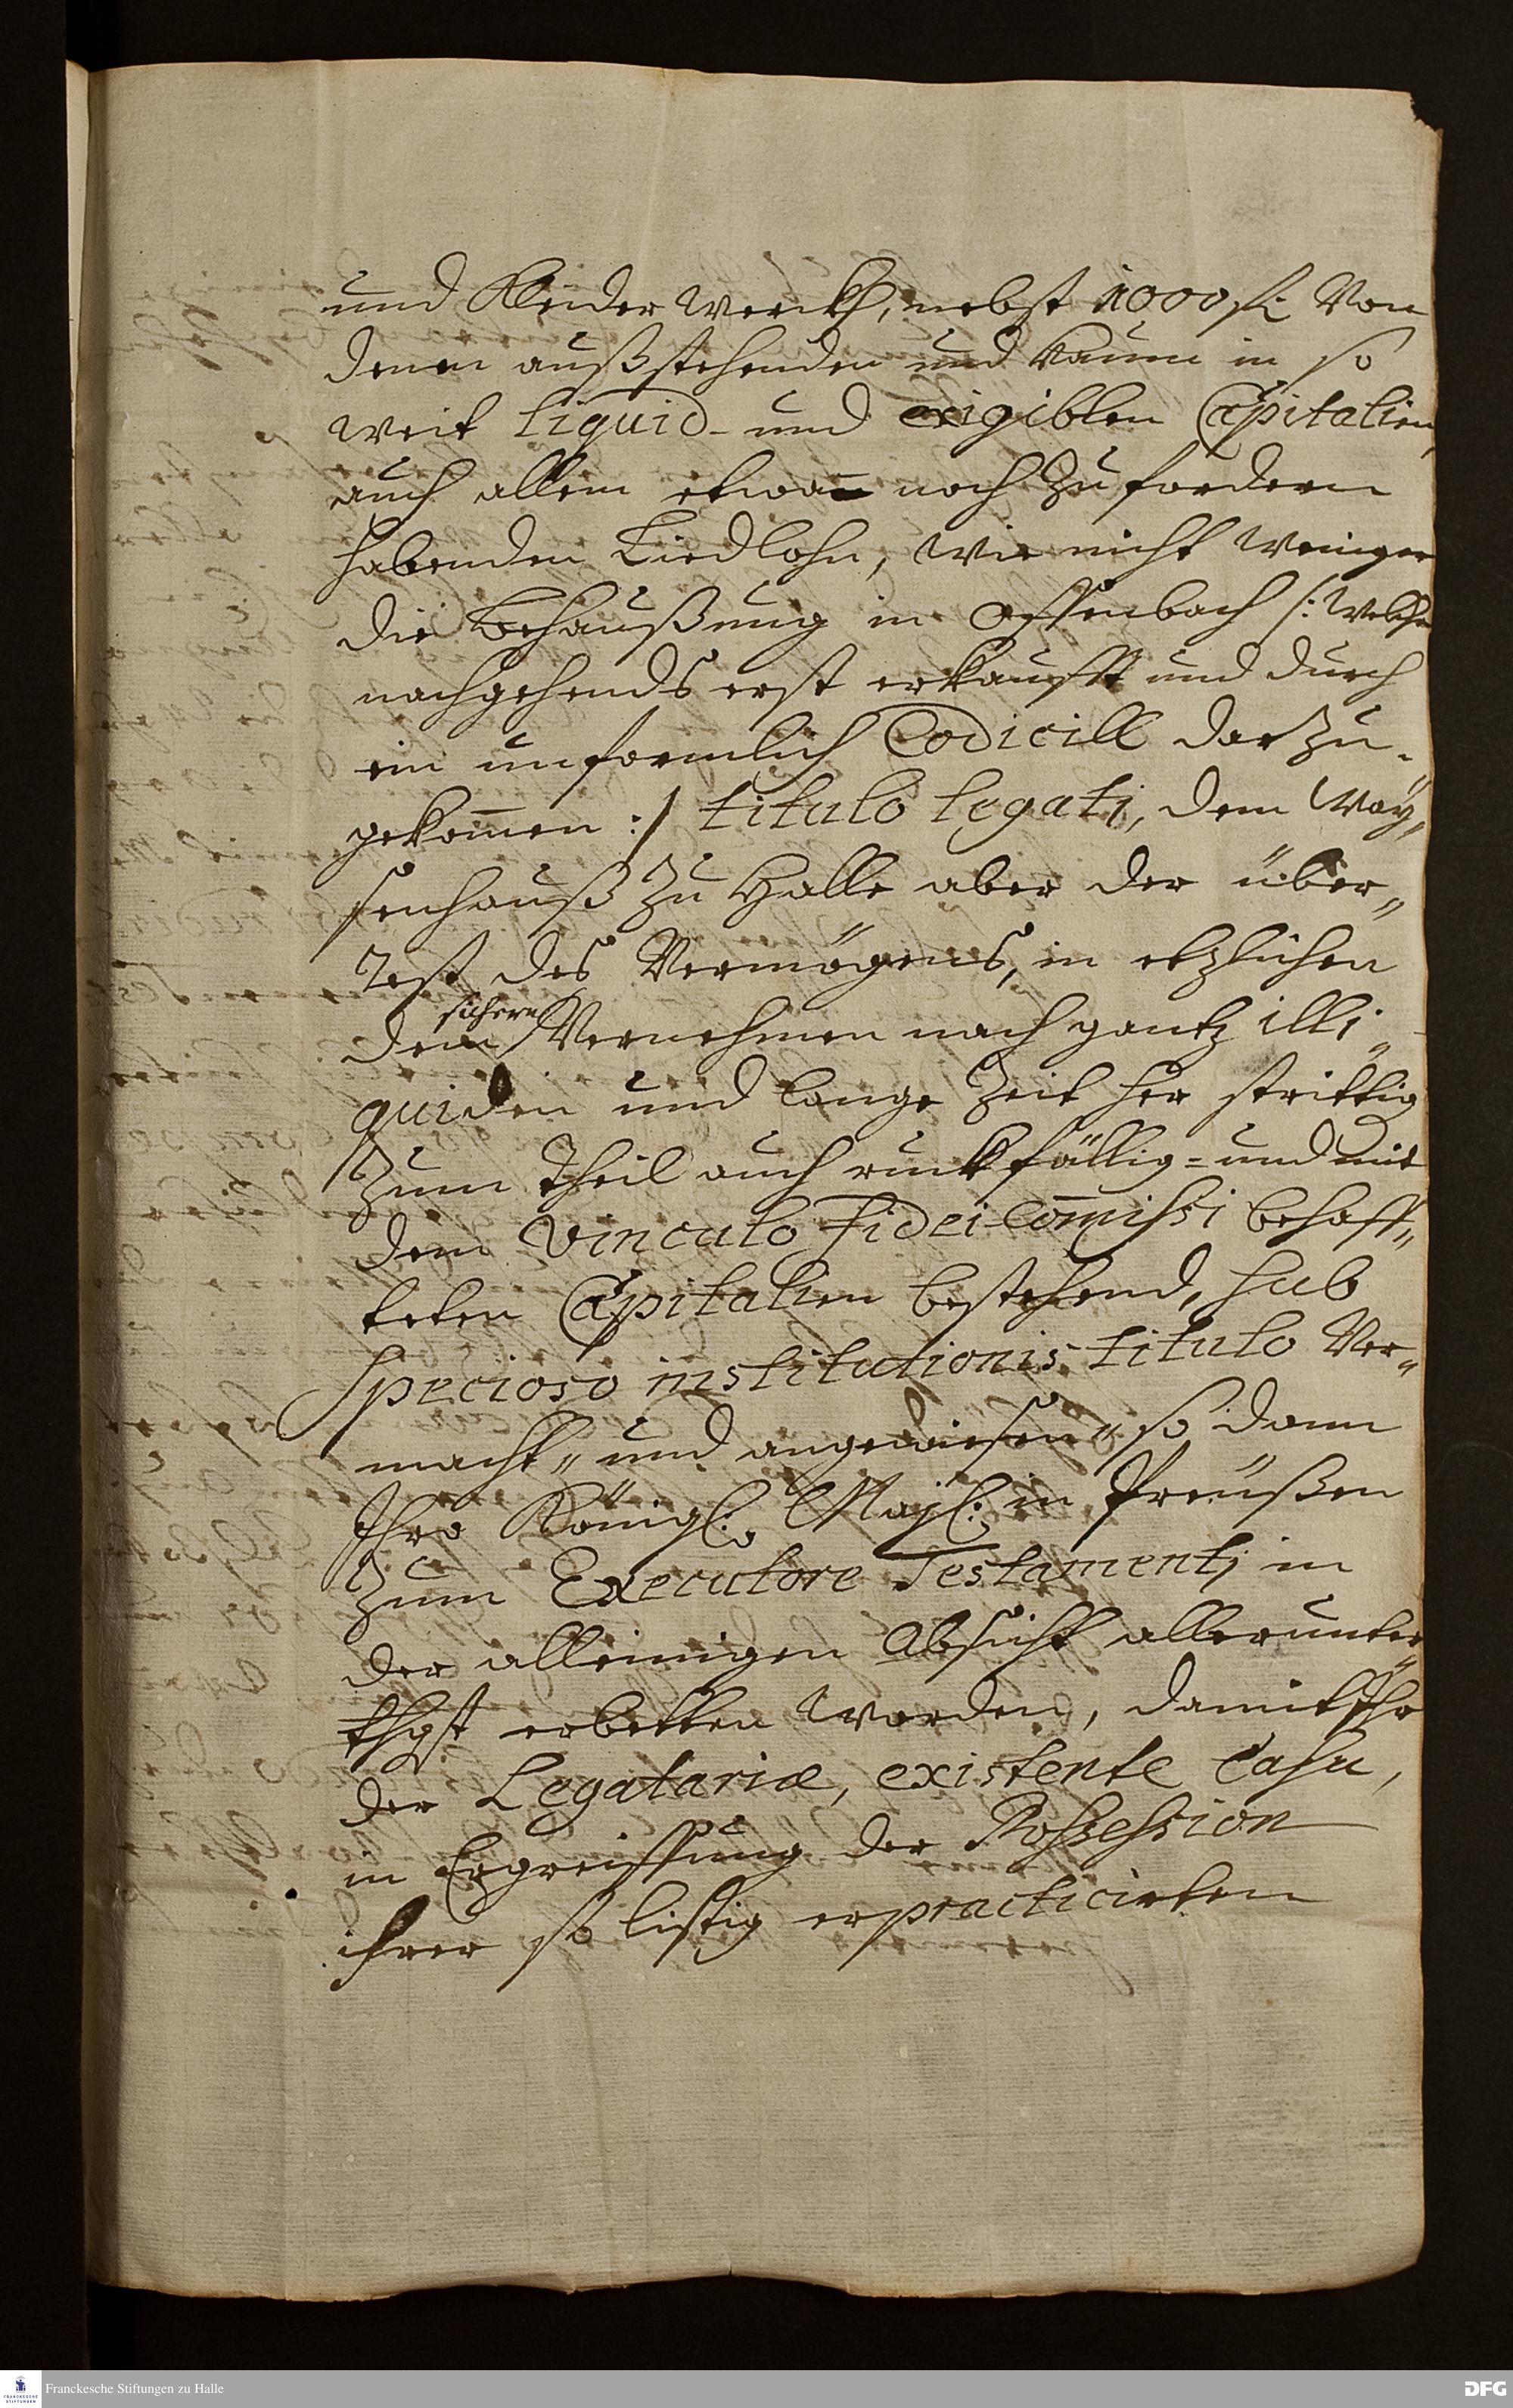 und Kleider Werckh, nebst 1000 fl. Von
denen außstehenden und kaum in so
weit liquid- und exigiblen Capitalien,
auch allem etwa noch zu fordern
habenden Liedlohn, wie nicht weniger
die Behaußung in Offenbach /: welche
nachgehends erst erkaufft und durch
ein unformlich Codicill darzu-
gekom̄en :/ titulo legati, dem Way„
senhauß zu Halle aber der über„
rest des Vermögens, in etzlichen
sichern
dem Vernehmen nach gantz illi„
quiden und lange Zeit her strittig
zum theil auch ruckfällig- und mit
dem vinculo Fidei-Com̄issi behaff„
teten Capitalien bestehend, sub
specioso institutionis titulo Ver„
macht„ und angewiesen„ so dann
Ihro Königl: Mayl: in Preüßen
zum Executore Testamenti in
der alleinigen Absicht allerunter„
thgst erbetten worden, damit Ihr
der Legatariæ, existente Casu,
in Ergreiffung der Possession
ihrer so listig erpracticirten
Franckesche Stiftungen zu Halle
DFG